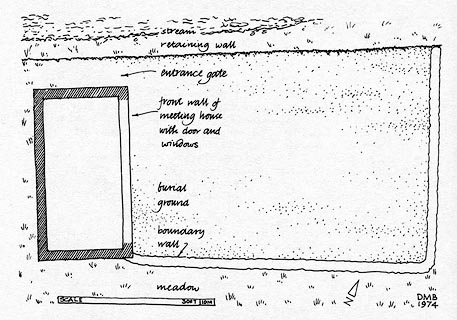 stream
retaining wall
entrance gate
front wall of
meeting house
with door and
windows
burial
ground
boundary
wall
meadow
SCALE
50FT 10M
N
DMB
1974